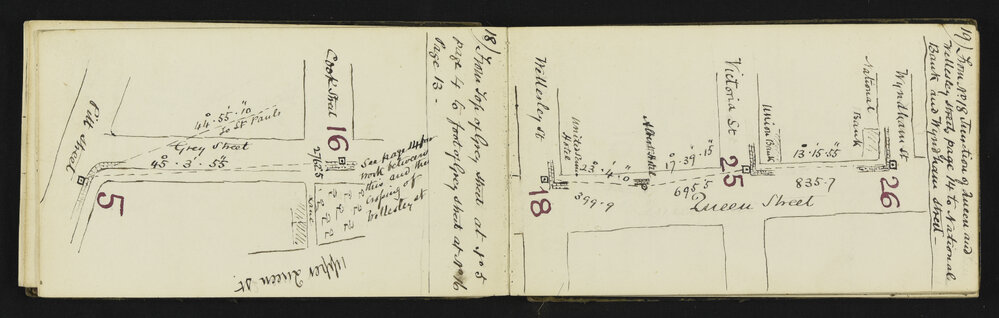 18) From Top of Grey Street at No 5
page 4 to foot of Grey Street at No 16
Page 13 -
Pitt Street
5
44° 55' 10"
To St Pauls
Grey Street
45° 3' 55"
Cook Street
16
2762.5
See page 14 for
work between
this and the
Crossing of
Wellesley St
Lane
Upper Queen St.
19) From No 18 Junction of Queen and
Wellesley Street, page 14 to National
Bank and Wyndham Street -
Wellesley St
18
399.9
13° 4' 0"
Albert Hotel
17° 39' 15"
695.5
Victoria St
25
Union Bank
13° 15' 55"
835.7
Queen Street
National
Bank
Wyndham St
26